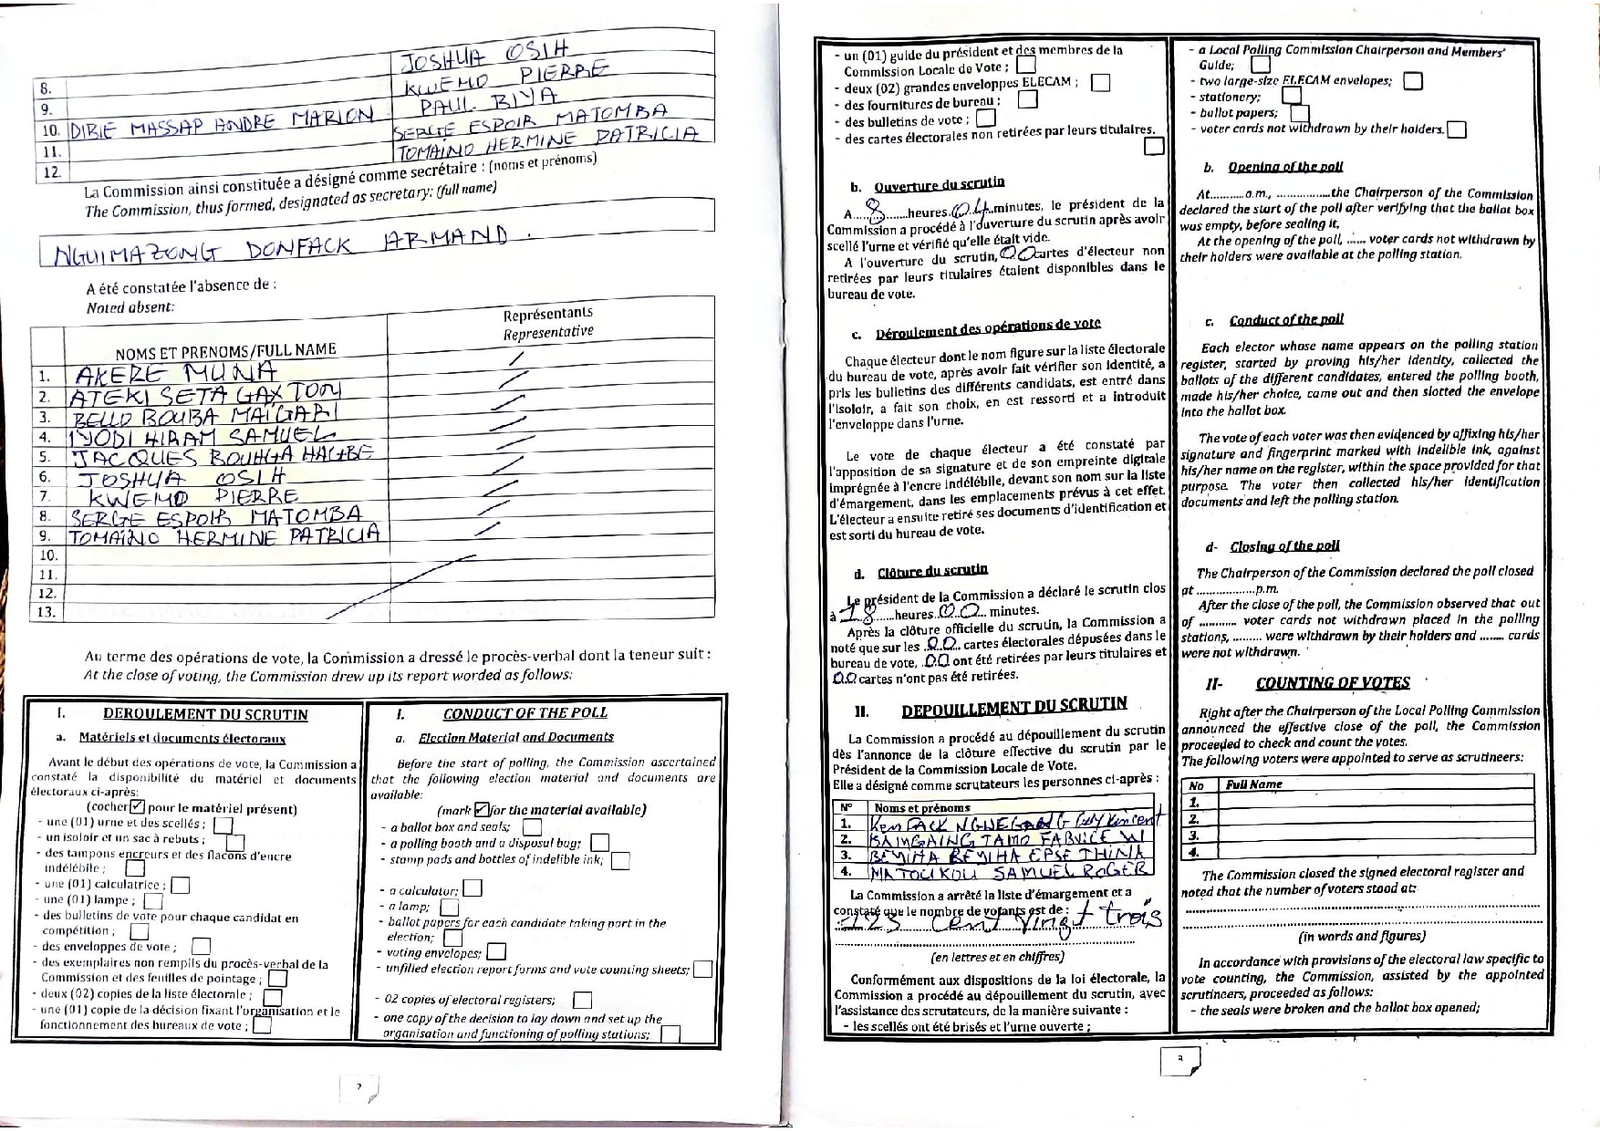 JOSHUA OSIH
8. KWEMO PIERRE
9. PAUL BIYA
10. DIBIE MASSAP ANDRE MARION SERGE ESPOIR MATOMBA
11. TOMAINO HERMINE PATRICIA
12.
La Commission ainsi constituée a désigné comme secrétaire : (noms et prénoms)
The Commission, thus formed, designated as secretary: (full name)
NGUIMAZONG DONFACK ARMAND.
A été constatée l'absence de :
Noted absent:
NOMS ET PRENOMS/FULL NAME
Représentants
Representative
1. AKERE MUNA
2. ATEKI SETA GAXTON
3. BELLO BOUBA MAIGARI
4. IYODI HIRAM SAMUEL
5. JACQUES BOUHGA HAGBE
6. JOSHUA OSIH
7. KWEMO PIERRE
8. SERGE ESPOIR MATOMBA
9. TOMAINO HERMINE PATRICIA
10.
11.
12.
13.
Au terme des opérations de vote, la Commission a dressé le procès-verbal dont la teneur suit :
At the close of voting, the Commission drew up its report worded as follows:
I. DEROULEMENT DU SCRUTIN
a. Matériels et documents électoraux
Avant le début des opérations de vote, la Commission a
constaté la disponibilité du matériel et documents
électoraux ci-après:
(cocher ☑ pour le matériel présent)
- une (01) urne et des scellés ;
- un isoloir et un sac à rebuts ;
- des tampons encreurs et des flacons d'encre
indélébile ;
- une (01) calculatrice ;
- une (01) lampe ;
- des bulletins de vote pour chaque candidat en
compétition ;
- des enveloppes de vote ;
- des exemplaires non remplis du procès-verbal de la
Commission et des feuilles de pointage ;
- deux (02) copies de la liste électorale ;
- une (01) copie de la décision fixant l'organisation et le
fonctionnement des bureaux de vote ;
I. CONDUCT OF THE POLL
a. Election Material and Documents
Before the start of polling, the Commission ascertained
that the following election material and documents are
available:
(mark ☑ for the material available)
- a ballot box and seals;
- a polling booth and a disposal bag;
- stamp pads and bottles of indelible ink;
- a calculator;
- a lamp;
- ballot papers for each candidate taking part in the
election;
- voting envelopes;
- unfilled election report forms and vote counting sheets;
- 02 copies of electoral registers;
- one copy of the decision to lay down and set up the
organisation and functioning of polling stations;
2
- un (01) guide du président et des membres de la
Commission Locale de Vote ;
- deux (02) grandes enveloppes ELECAM ;
- des fournitures de bureau ;
- des bulletins de vote ;
- des cartes électorales non retirées par leurs titulaires.
b. Ouverture du scrutin
A....8......heures.04.minutes, le président de la
Commission a procédé à l'ouverture du scrutin après avoir
scellé l'urne et vérifié qu'elle était vide.
A l'ouverture du scrutin, 00 cartes d'électeur non
retirées par leurs titulaires étaient disponibles dans le
bureau de vote.
c. Déroulement des opérations de vote
Chaque électeur dont le nom figure sur la liste électorale
du bureau de vote, après avoir fait vérifier son identité, a
pris les bulletins des différents candidats, est entré dans
l'isoloir, a fait son choix, en est ressorti et a introduit
l'enveloppe dans l'urne.
Le vote de chaque électeur a été constaté par
l'apposition de sa signature et de son empreinte digitale
imprégnée à l'encre indélébile, devant son nom sur la liste
d'émargement, dans les emplacements prévus à cet effet.
L'électeur a ensuite retiré ses documents d'identification et
est sorti du bureau de vote.
d. Clôture du scrutin
Le président de la Commission a déclaré le scrutin clos
à 18 heures 00 minutes.
Après la clôture officielle du scrutin, la Commission a
noté que sur les 00 cartes électorales déposées dans le
bureau de vote, 00 ont été retirées par leurs titulaires et
00 cartes n'ont pas été retirées.
II. DEPOUILLEMENT DU SCRUTIN
La Commission a procédé au dépouillement du scrutin
dès l'annonce de la clôture effective du scrutin par le
Président de la Commission Locale de Vote.
Elle a désigné comme scrutateurs les personnes ci-après :
N° Noms et prénoms
1. KenFACK Guy Vincent
2. KAMGAING TAMO
3. BEYIHA BEYIHA EPSE THINA
4. MATOUKOU SAMUEL ROGER
La Commission a arrêté la liste d'émargement et a
constaté que le nombre de votants est de :
123 Cent vingt trois
(en lettres et en chiffres)
Conformément aux dispositions de la loi électorale, la
Commission a procédé au dépouillement du scrutin, avec
l'assistance des scrutateurs, de la manière suivante :
- les scellés ont été brisés et l'urne ouverte ;
- a Local Polling Commission Chairperson and Members'
Guide;
- two large-size ELECAM envelopes;
- stationery;
- ballot papers;
- voter cards not withdrawn by their holders.
b. Opening of the poll
At..........a.m., ................the Chairperson of the Commission
declared the start of the poll after verifying that the ballot box
was empty, before sealing it.
At the opening of the poll, ...... voter cards not withdrawn by
their holders were available at the polling station.
c. Conduct of the poll
Each elector whose name appears on the polling station
register, started by proving his/her identity, collected the
ballots of the different candidates, entered the polling booth,
made his/her choice, came out and then slotted the envelope
into the ballot box.
The vote of each voter was then evidenced by affixing his/her
signature and fingerprint marked with indelible ink, against
his/her name on the register, within the space provided for that
purpose. The voter then collected his/her identification
documents and left the polling station.
d- Closing of the poll
The Chairperson of the Commission declared the poll closed
at .................p.m.
After the close of the poll, the Commission observed that out
of ........... voter cards not withdrawn placed in the polling
stations, ......... were withdrawn by their holders and ....... cards
were not withdrawn.
II- COUNTING OF VOTES
Right after the Chairperson of the Local Polling Commission
announced the effective close of the poll, the Commission
proceeded to check and count the votes.
The following voters were appointed to serve as scrutineers:
No Full Name
1.
2.
3.
4.
The Commission closed the signed electoral register and
noted that the number of voters stood at:
(in words and figures)
In accordance with provisions of the electoral law specific to
vote counting, the Commission, assisted by the appointed
scrutineers, proceeded as follows:
- the seals were broken and the ballot box opened;
3